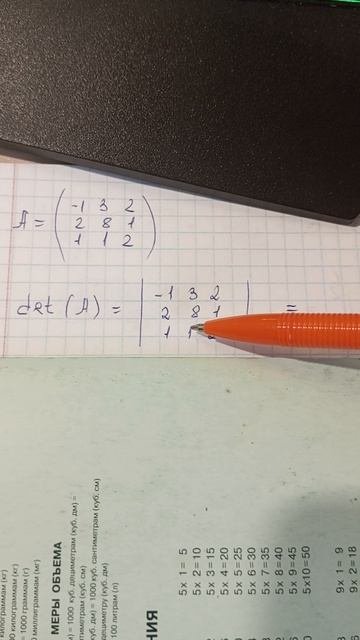 A = ( -1 3 2
2 8 1
1 1 2 )
det (A) = | -1 3 2 | =
2 8 1
1 1 2
килограммам (кг)
килограммам (кг)
= 1000 граммам (г)
миллиграммам (мг)
МЕРЫ ОБЪЕМА
= 1000 куб. дециметрам (куб. дм) =
сантиметрам (куб. см)
(куб. дм) = 1000 куб. сантиметрам (куб. см)
дециметру (куб. дм)
100 литрам (л)
НИЯ
5 x 1 = 5
5 x 2 = 10
5 x 3 = 15
5 x 4 = 20
5 x 5 = 25
5 x 6 = 30
5 x 7 = 35
5 x 8 = 40
5 x 9 = 45
5 x 10 = 50
9 x 1 = 9
9 x 2 = 18